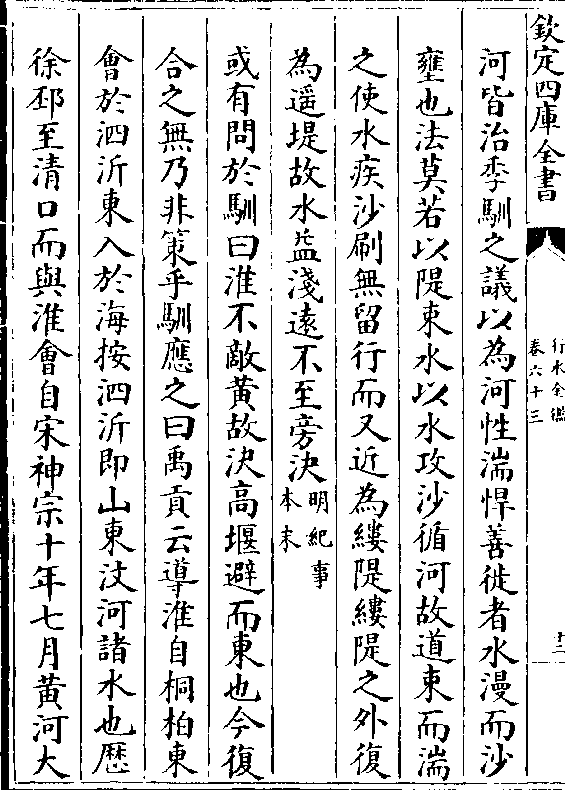 欽定四庫全書
行水金鑑
卷六十三
十二
河皆治季馴之議以為河性湍悍善徙者水漫而沙
壅也法莫若以隄束水以水攻沙循河故道束而湍
之使水疾沙刷無留行而又近為縷隄縷隄之外復
為遥堤故水益淺遠不至旁決明紀事
本末
或有問於馴曰淮不敵黄故決高堰避而東也今復
合之無乃非策乎馴應之曰禹貢云導淮自桐柏東
會於泗沂東入於海按泗沂即山東汶河諸水也歴
徐邳至清口而與淮會自宋神宗十年七月黄河大